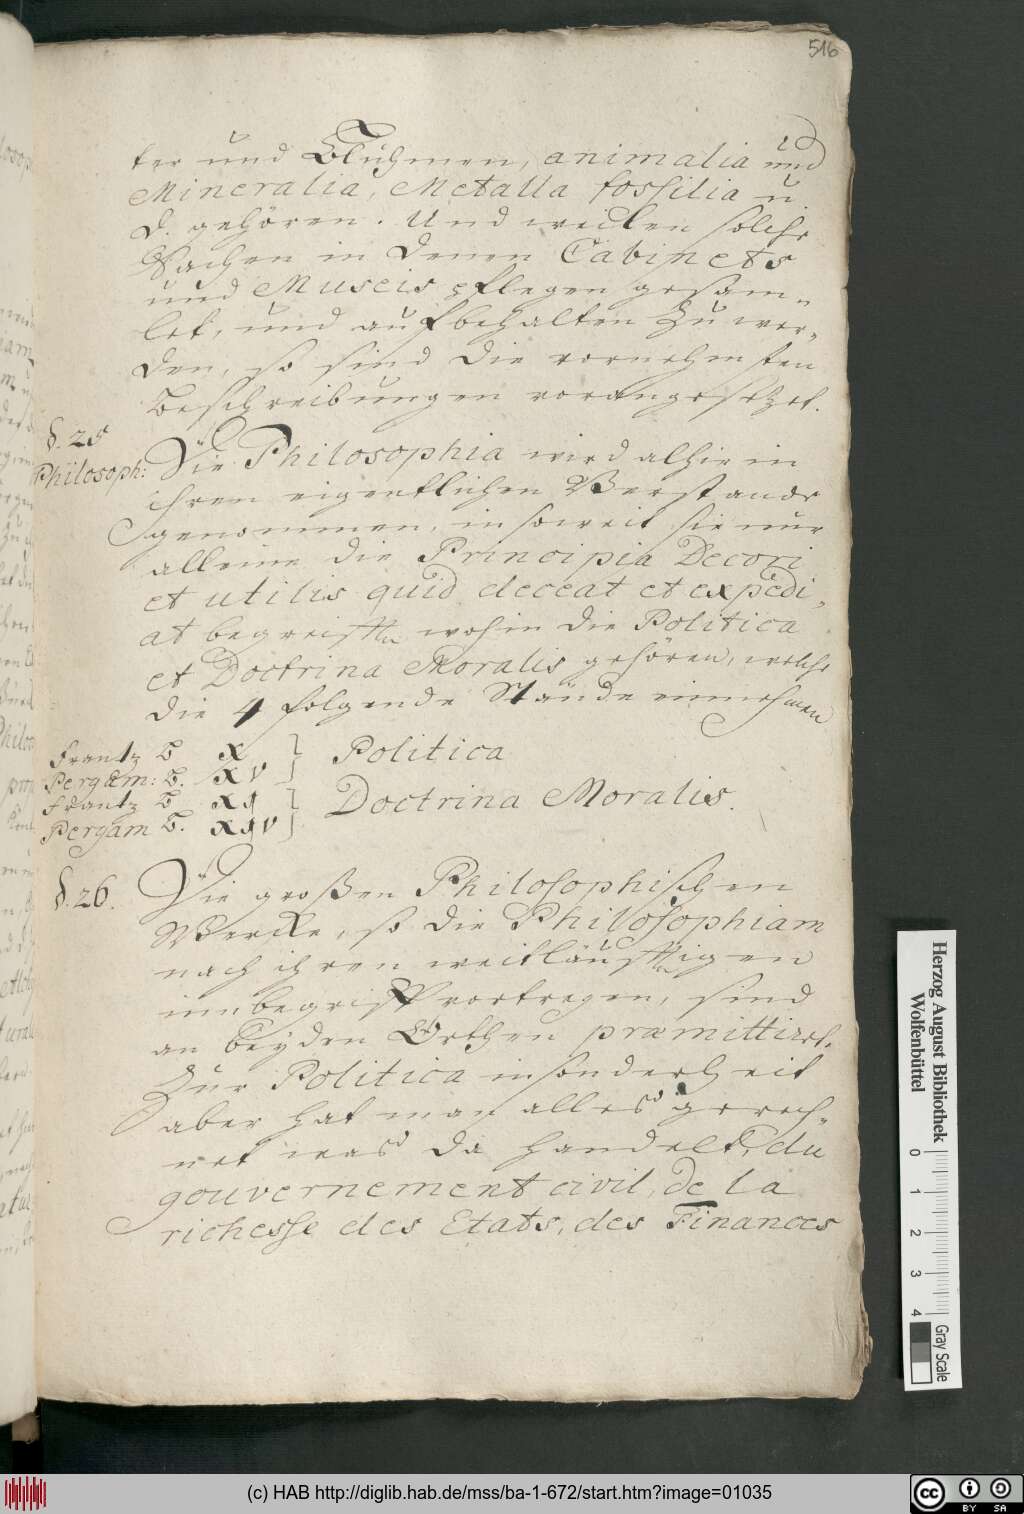 516
ter und Bluhmen, animalia und
Mineralia, Metalla fossilia u.
d. gehören. Und weilen solche
Sachen in denen Cabinets
und Museis pflegen gesam=
let, und aufbehalten zu wer=
den, so sind die vornehmsten
Beschreibungen vorangesetzet.
§. 25
Philosoph:
Die Philosophia wird alhie in
ihren eigentlichen Verstande
genommen, in soweit sie nur
alleine die Principia Decori
et utilis quid deceat et expedi=
at begreifft wohin die Politica
et Doctrina Moralis gehören, welche
die 4 folgende Stände einnehmen
Frantz B X } Politica
Pergam: B. XV
Frantz B XIX } Doctrina Moralis.
Pergam B.
§. 26.
Die großen Philosophischen
Wercke, so die Philosophiam
nach ihren weitläufftigen
innbegriff vortragen, sind
an beyden Orthen præmittiret.
Zur Politica insonderheit
aber hat man alles gerech=
net was da handelt, du
gouvernement civil, de la
richesse des Etats, des Finances
Herzog August Bibliothek
Wolfenbüttel
0 1 2 3 4
Gray Scale
(c) HAB http://diglib.hab.de/mss/ba-1-672/start.htm?image=01035
cc BY SA